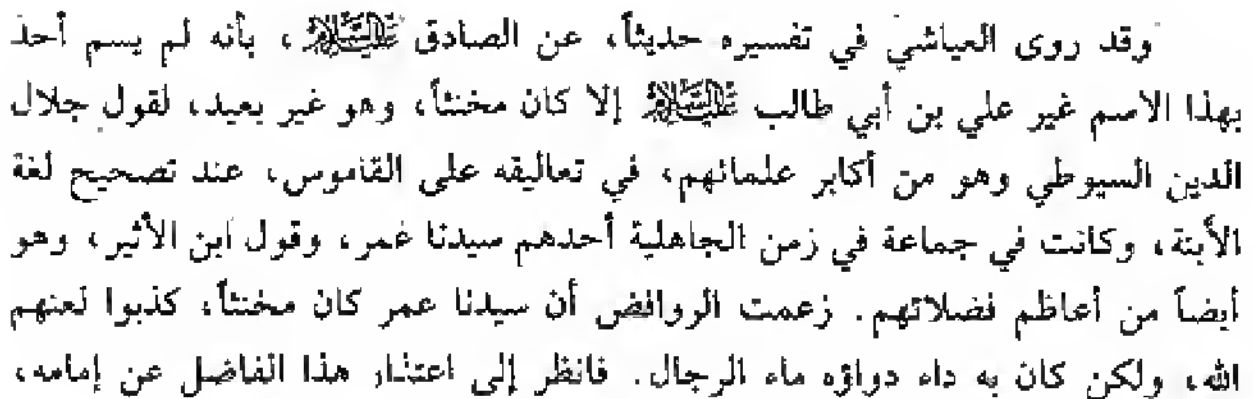 وقد روى العياشي في تفسيره حديثاً، عن الصادق عليه السلام، بأنه لم يسم أحد
بهذا الاسم غير علي بن أبي طالب عليه السلام إلا كان مخنثاً، وهو غير بعيد، لقول جلال
الدين السيوطي وهو من أكابر علمائهم، في تعاليقه على القاموس، عند تصحيح لغة
الأبنة، وكانت في جماعة في زمن الجاهلية أحدهم سيدنا عمر، وقول ابن الأثير، وهو
أيضاً من أعاظم فضلائهم. زعمت الروافض أن سيدنا عمر كان مخنثاً، كذبوا لعنهم
الله، ولكن كان به داء دواؤه ماء الرجال. فانظر إلى اعتذار هذا الفاضل عن إمامه،